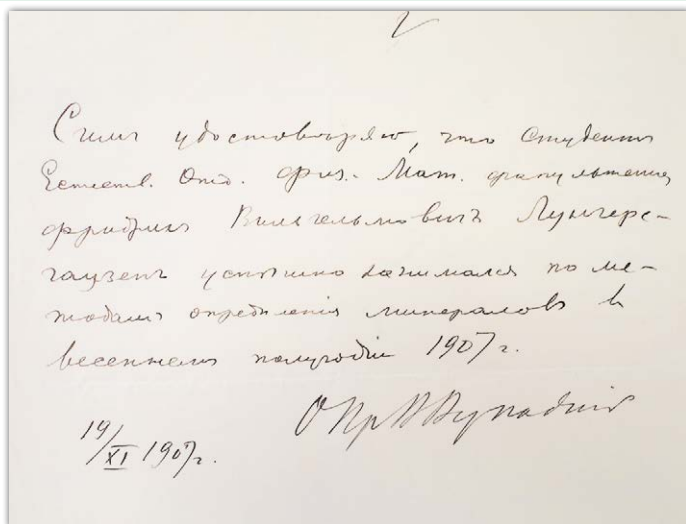 Симъ удостовѣряю, что студентъ
Естеств. Отд. Физ.-Мат. факультета
Фридрихъ Вильгельмовичъ Лунгерс-
гаузенъ успѣшно занимался по ме-
тодамъ опредѣленія минераловъ в
весеннемъ полугодіи 1907 г.
14/XI 1907г.